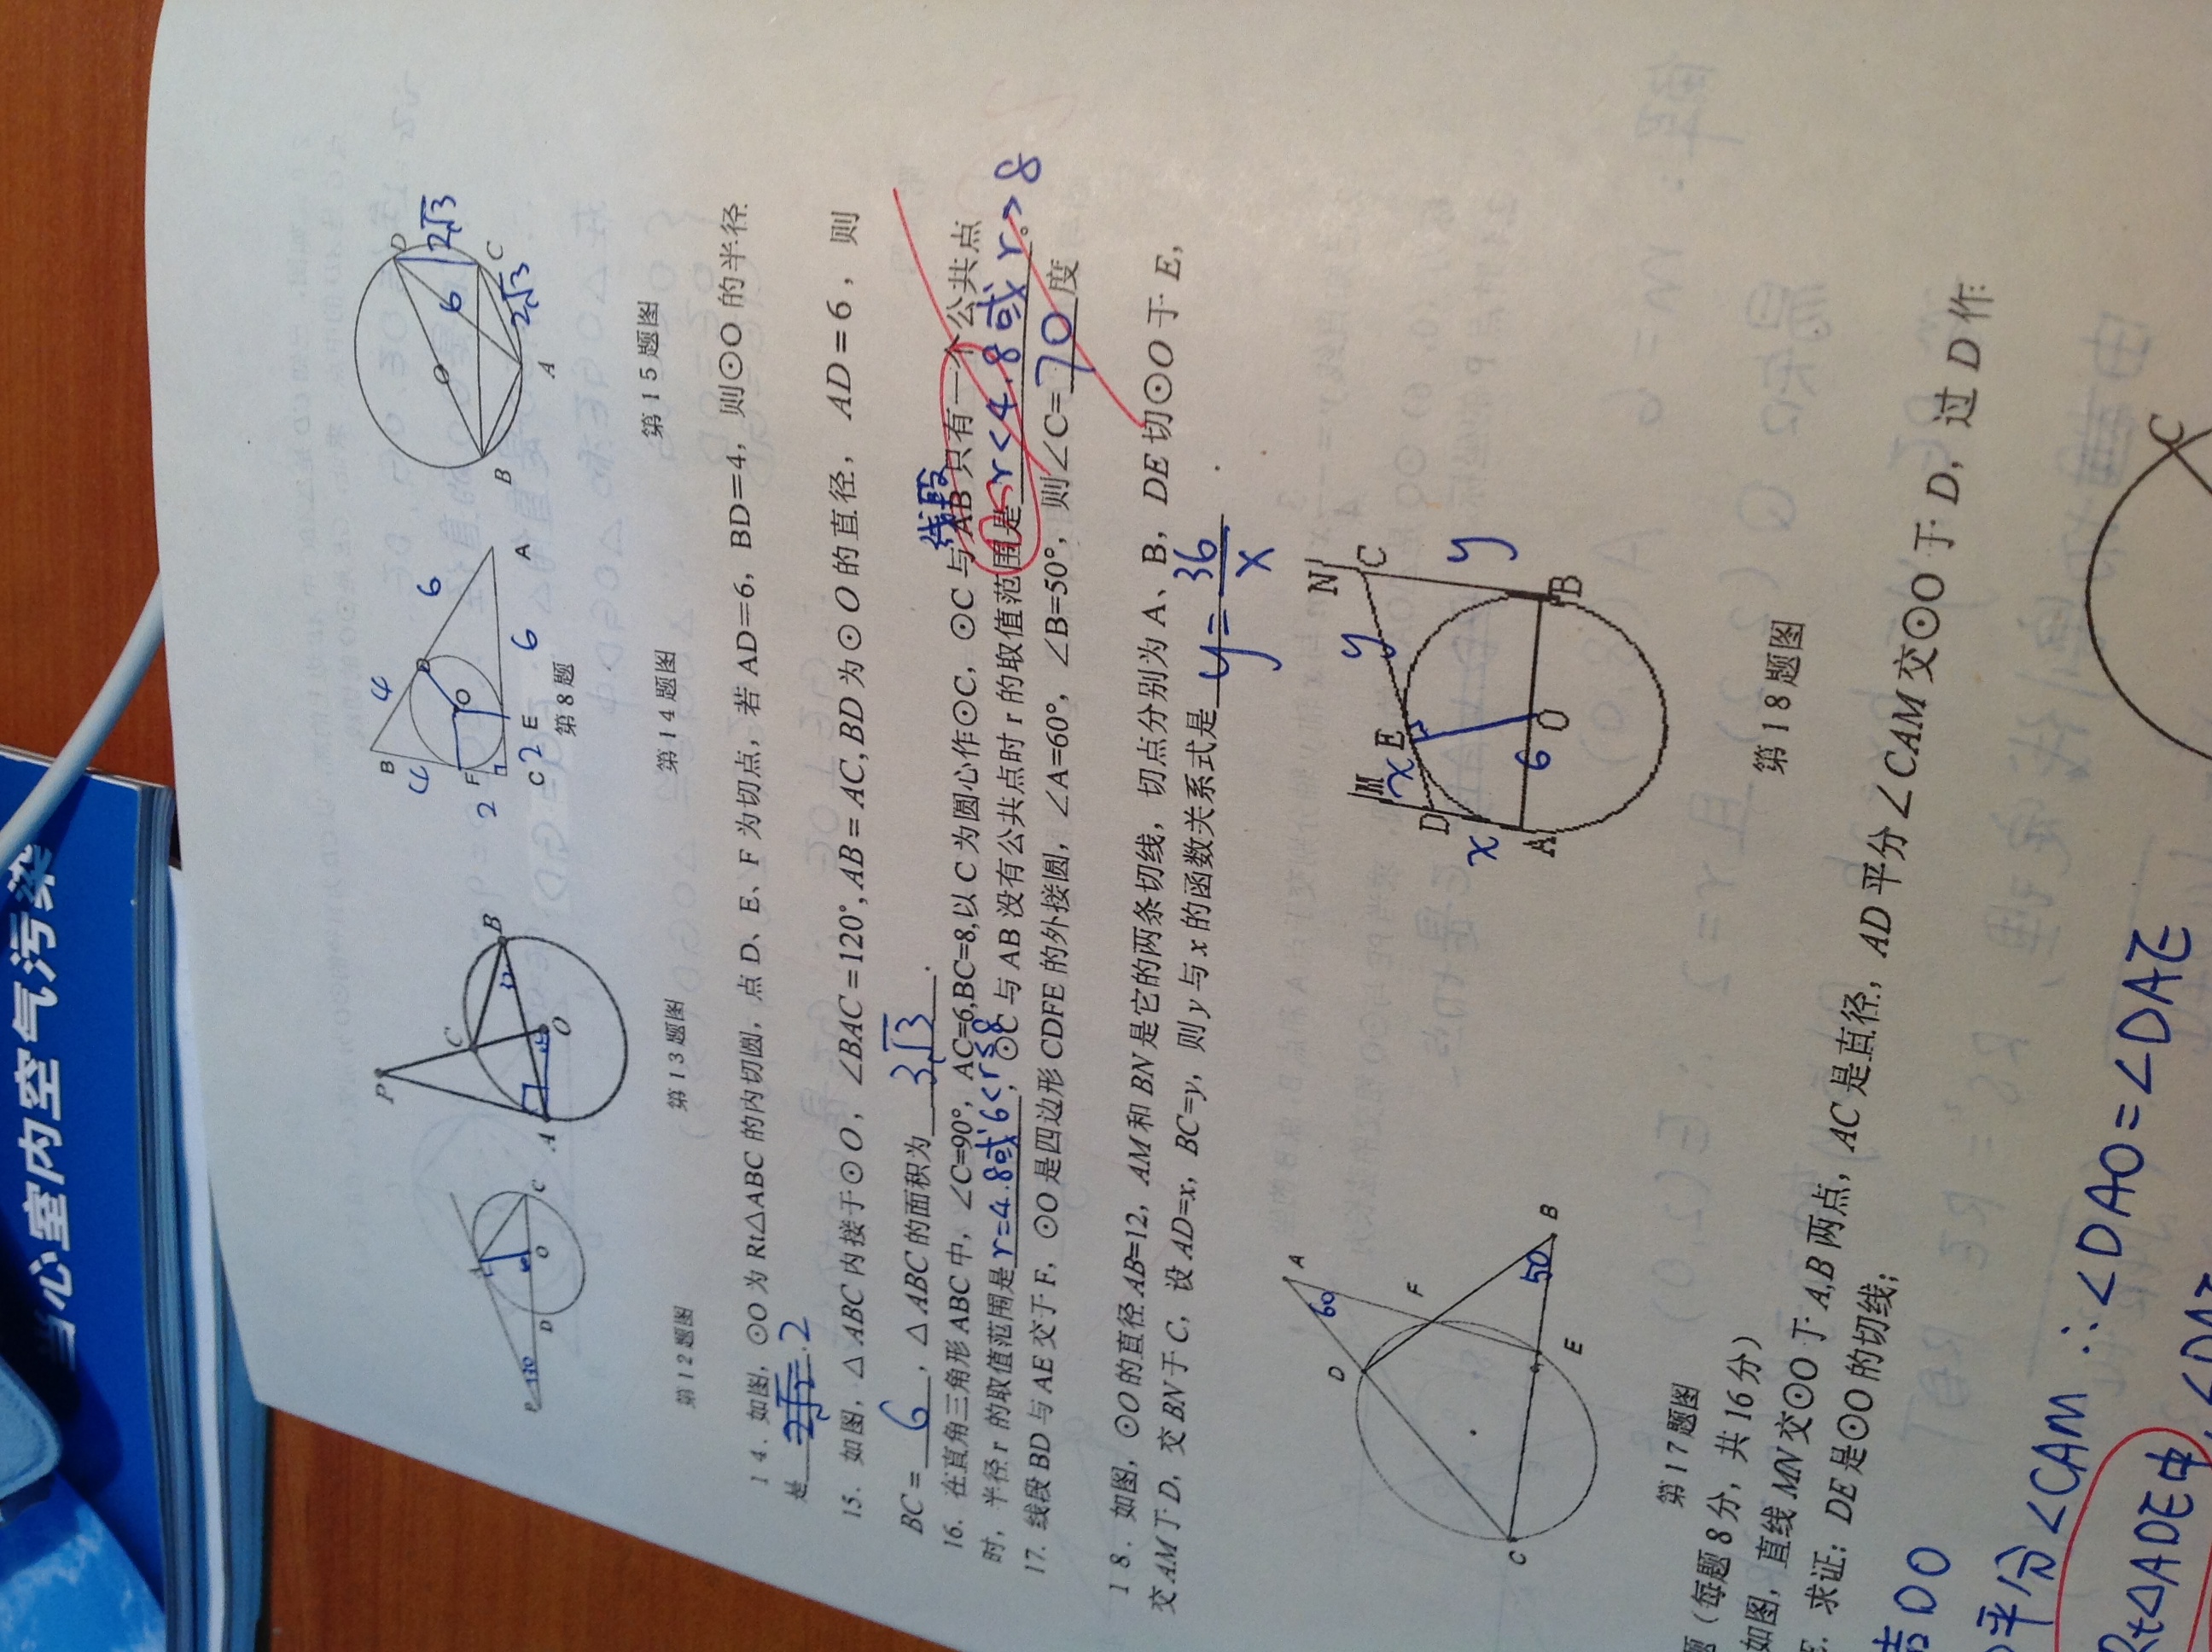 当心室内空气污染
P
A
D
O
C
30
60
第12题图
P
C
B
A
O
第13题图
B
4
4
D
6
F
O
2
C
2
E
6
A
第8题
第14题图
D
O
6
2√3
B
C
2√3
A
第15题图
14.如图,⊙O为Rt△ABC的内切圆,点D、E、F为切点,若AD=6,BD=4,则⊙O的半径
是 2√2 .2
15. 如图,△ABC内接于⊙O,∠BAC=120°,AB=AC,BD为⊙O的直径,AD=6,则
BC= 6 ,△ABC的面积为 3√3 .
线段
16. 在直角三角形ABC中,∠C=90°,AC=6,BC=8,以C为圆心作⊙C,⊙C与AB只有一个公共点
时,半径r的取值范围是 r=4.8或6<r≤8 ,⊙C与AB没有公共点时r的取值范围是 0<r<4.8或r>8 。
17. 线段BD与AE交于F,⊙O是四边形CDFE的外接圆,∠A=60°,∠B=50°,则∠C= 70 度
18.如图,⊙O的直径AB=12,AM和BN是它的两条切线,切点分别为A、B,DE切⊙O于E,
交AM于D,交BN于C,设AD=x,BC=y,则y与x的函数关系式是 y=36/x .
A
60
D
F
C
50
B
E
第17题图
N
M
y
C
x
E
D
x
y
A
6
O
B
第18题图
题(每题8分,共16分)
如图,直线MN交⊙O于A,B两点,AC是直径,AD平分∠CAM交⊙O于D,过D作
E. 求证:DE是⊙O的切线;
结DO
D平分∠CAM ∴∠DAO=∠DAE
Rt△ADE中,
C